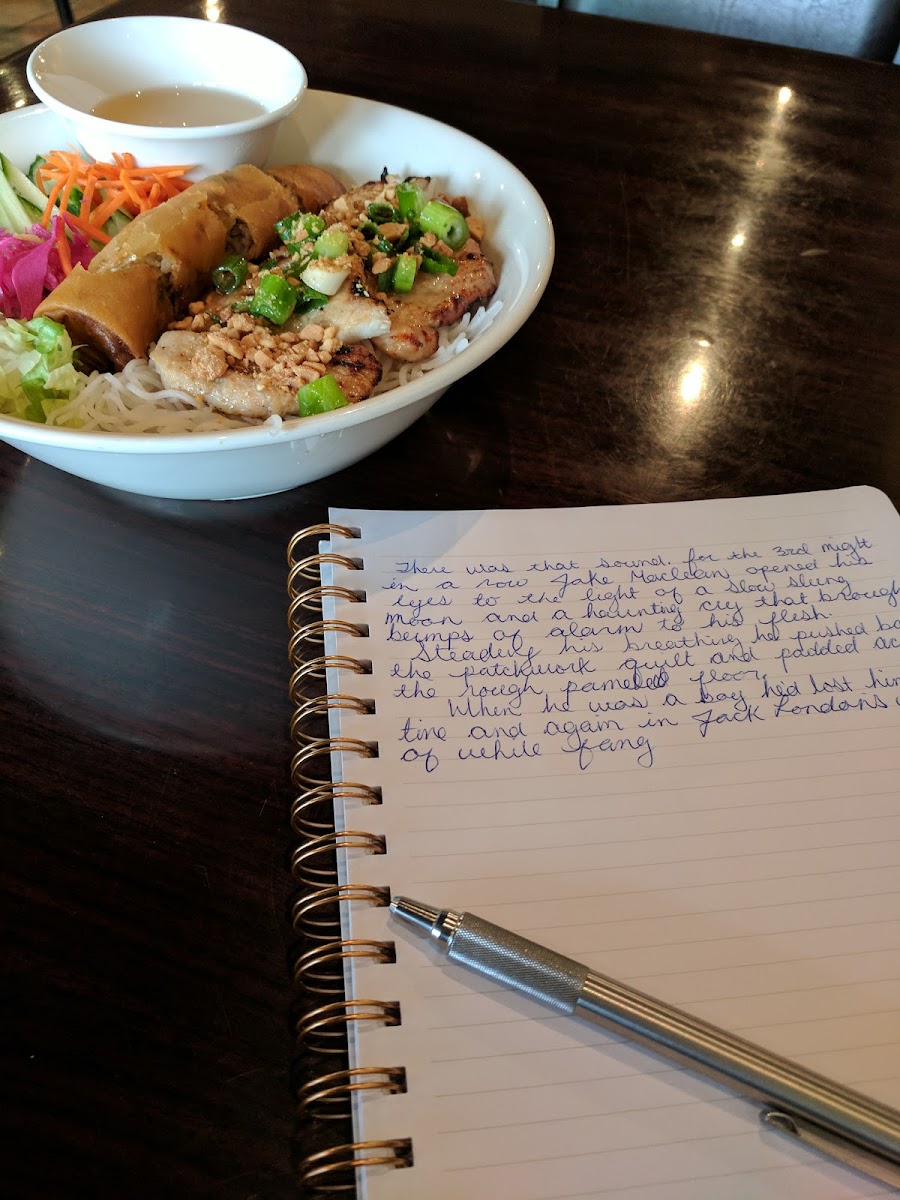 There was that sound. for the 3rd night
in a row Jake Maclean opened his
eyes to the light of a slow slung
moon and a haunting cry that brough
bumps of alarm to his flesh.
Steadying his breathing he pushed ba
the patchwork quilt and padded ac
the rough floor,
When he was a boy hed lost him
time and again in Jack London's
of while fang